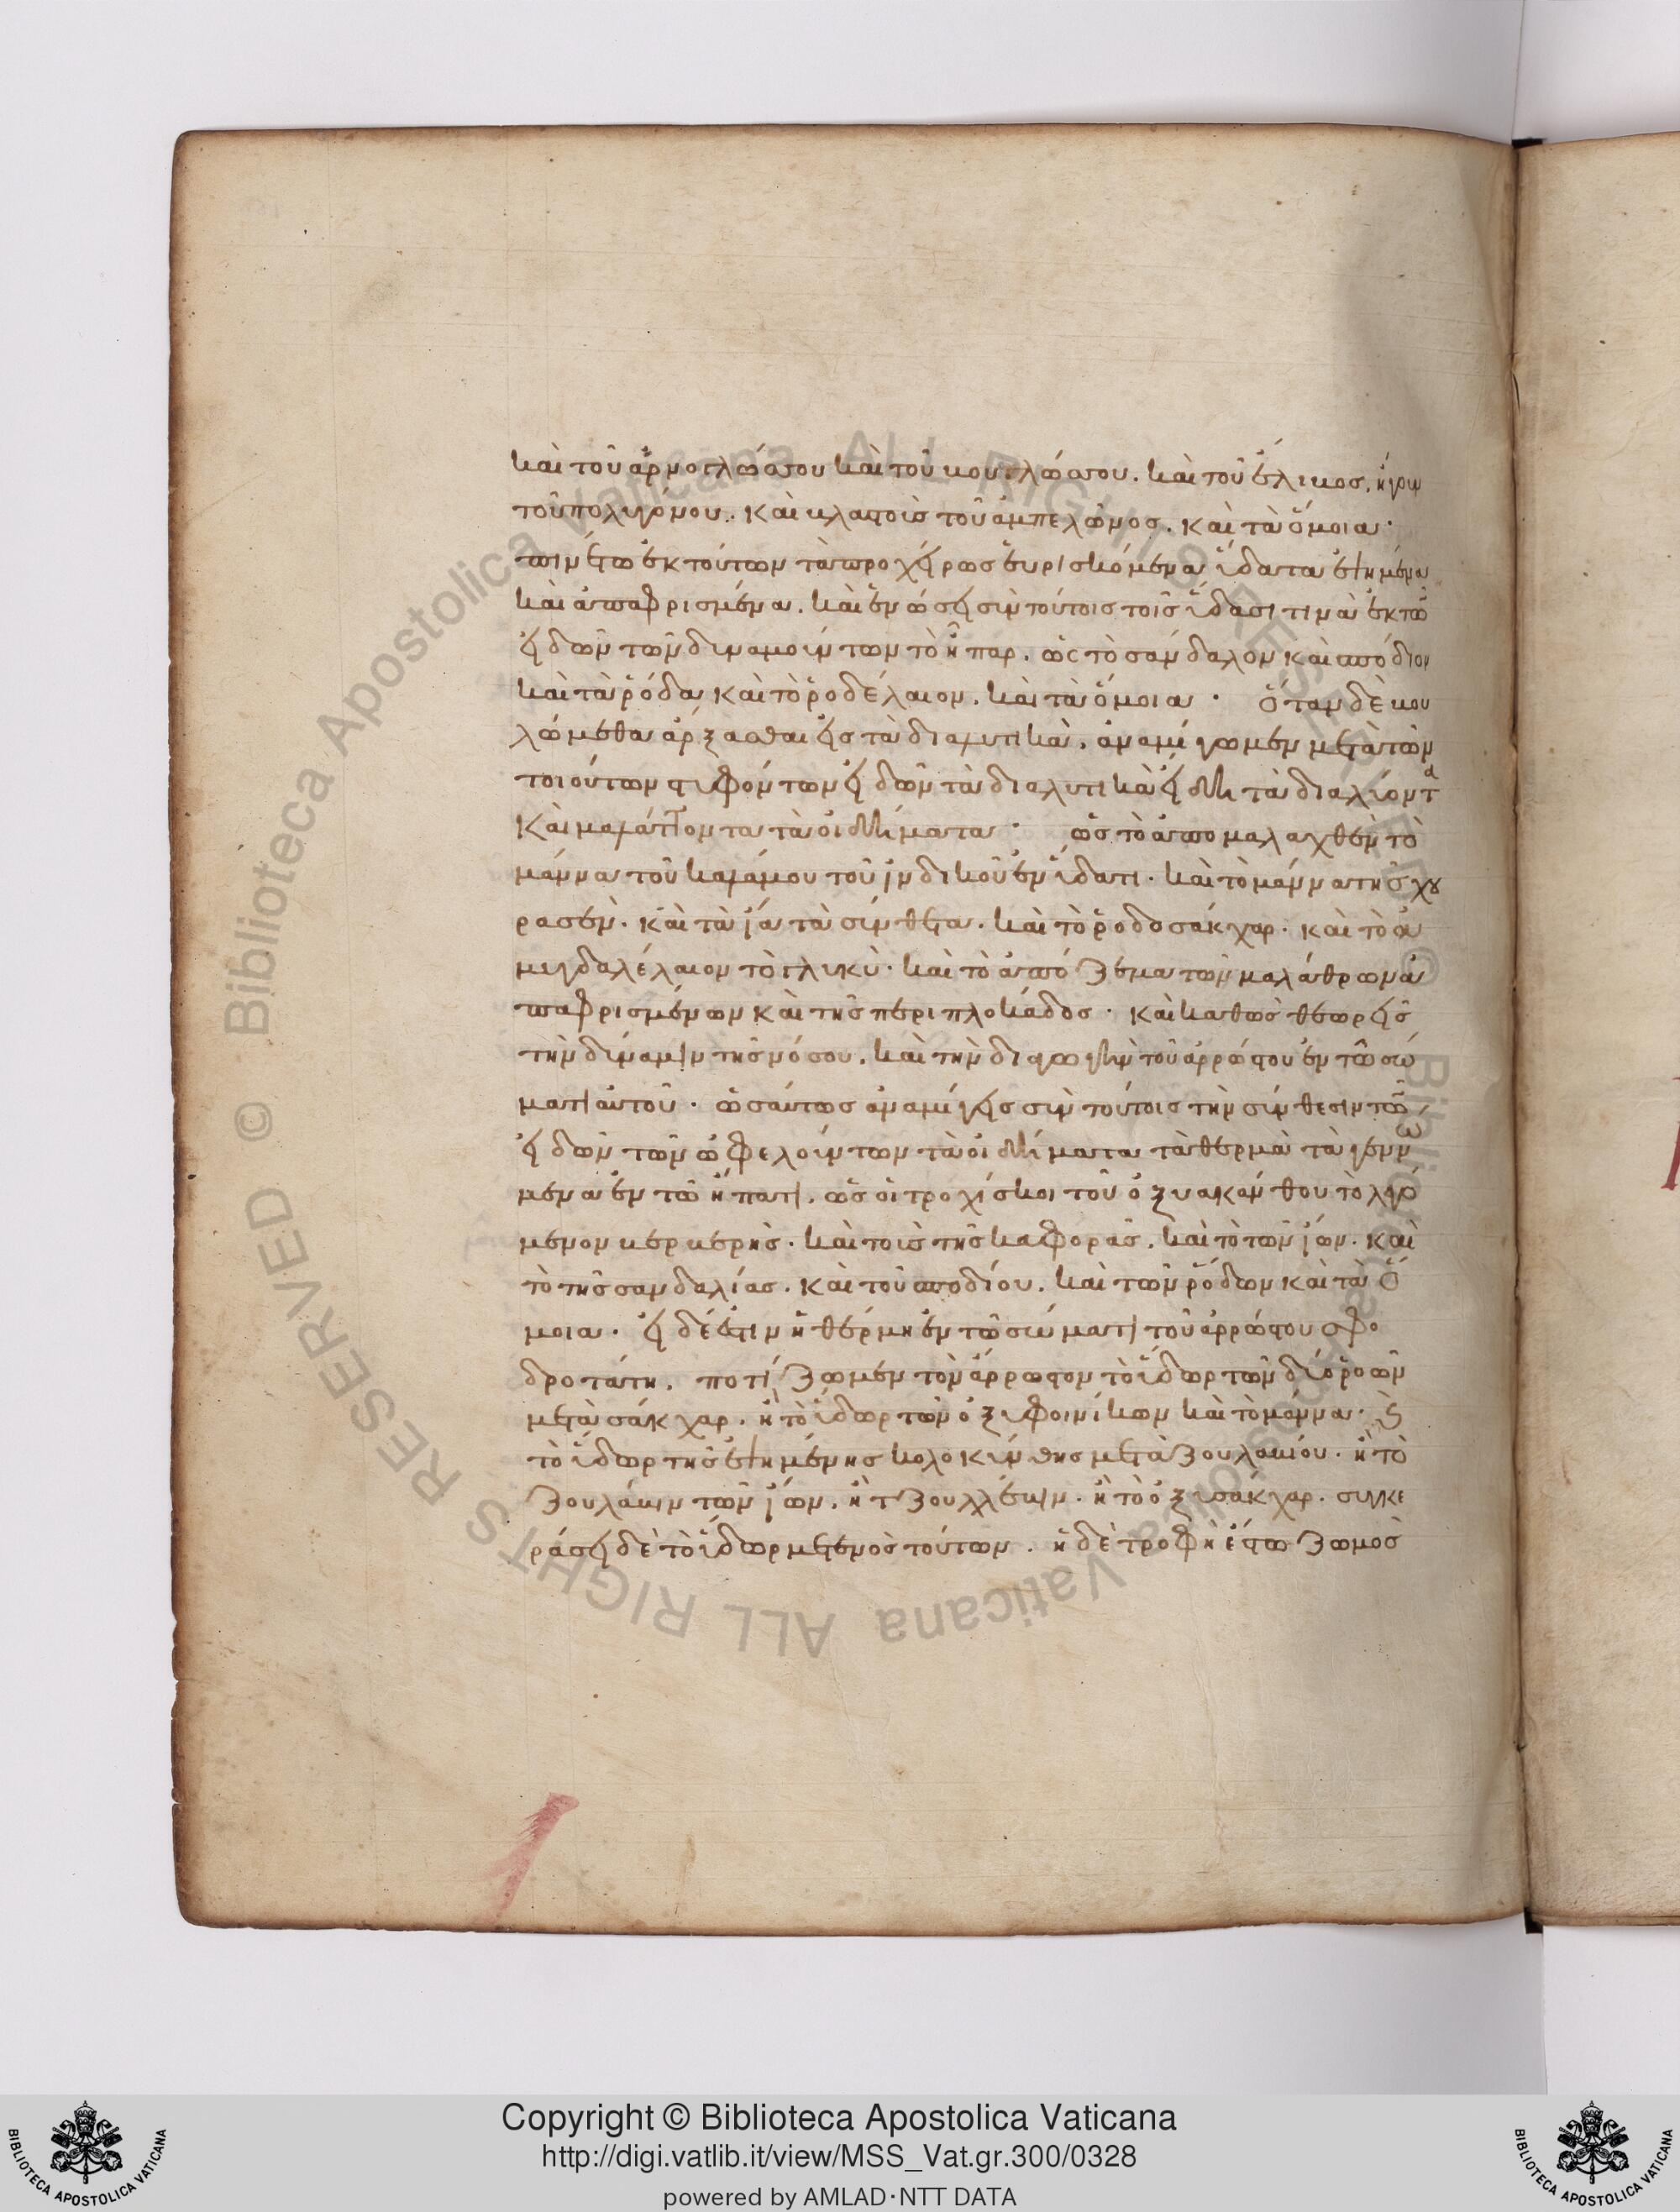 καὶ τοῦ ἀρνογλώσσου καὶ τοῦ βουγλώσσου. καὶ τοῦ ἕλικος, ἤγουν
τοῦ πολυγόνου. καὶ κλαστοὺς τοῦ ἀμπελῶνος. καὶ τὰ ὅμοια·
πινέτω ἐκ τούτων τὰ προχείρως εὑρισκόμενα ὕδατα ἑψημένα
καὶ ἀπαφρισμένα. καὶ ἑνώσει σὺν τούτοις τοῖς ὕδασι τινὰ ἐκ τῶν
εἰδῶν τῶν δυναμούντων τὸ ἧπαρ. ὡς τὸ σάνδαλον καὶ σπόδιον
καὶ τὰ ῥόδα καὶ τὸ ῥοδέλαιον. καὶ τὰ ὅμοια· ὅταν δὲ βου
λώμεθα ἄρξασθαι εἰς τὰ διαλυτικὰ. ἀναμίγωμεν μετὰ τῶν
τοιούτων στυφόντων εἰδῶν τὰ διαλυτικὰ εἴδη τὰ διαλύοντα
καὶ μαλάττοντα τὰ οἰδήματα· ὡς τὸ ἀπομαλαχθὲν τὸ
μάννα τοῦ καλάμου τοῦ ἰνδικοῦ ἐν ὕδατι. καὶ τὸ μάννα τῆς χου
ρασὲν. καὶ τὰ ἴα τὰ σύνθετα. καὶ τὸ ῥοδοσάκχαρ. καὶ τὸ ἀ
μυγδαλέλαιον τὸ γλυκὺ. καὶ τὸ ἀπόζεμα τῶν μαλάθρων ἀ
παφρισμένων καὶ τῆς περιπλοκάδος. καὶ καθὼς θεωρεῖς
τὴν δύναμιν τῆς νόσου. καὶ τὴν διαγωγὴν τοῦ ἀρρώστου ἐν τῶ σώ
ματι αὐτοῦ. ὡσαύτως ἀναμίγεις σὺν τούτοις τὴν σύνθεσιν τῶν
εἰδῶν τῶν ὠφελούντων τὰ οἰδήματα τὰ θερμὰ τὰ γεννώ
μενα ἐν τῶ ἥπατι. ὡς οἱ τροχίσκοι τοῦ ὀξυακάνθου τὸ λεγό
μενον βερβερῆς. καὶ τοὺς τῆς καφορᾶς. καὶ τὸ τῶν ἴων. καὶ
τὸ τῆς σανδαλίας. καὶ τοῦ σποδίου. καὶ τῶν ῥόδων καὶ τὰ ὅ
μοια. εἰ δέ ἐστιν ἡ θέρμη ἐν τῶ σώματι τοῦ ἀρρώστου σφο
δροτάτη. ποτίζωμεν τὸν ἄρρωστον τὸ ὕδωρ τῶν δύο ῥοῶν
μετὰ σάκχαρ. ἢ τὸ ὕδωρ τῶν ὀξυφοινίκων καὶ τὸ μάννα. καὶ
τὸ ὕδωρ τῆς ἑψημένης κολοκύνθης μετὰ ζουλαπίου. ἢ τὸ
ζουλάπιν τῶν ἴων. ἢ τζουλλέπιν. ἢ τὸ ὀξυσάκχαρ. συγκε
ράσει δὲ τὸ ὕδωρ μετ ἑνὸς τούτων. ἡ δὲ τροφὴ ἔστω ζωμὸς
Copyright © Biblioteca Apostolica Vaticana
http://digi.vatlib.it/view/MSS_Vat.gr.300/0328
powered by AMLAD·NTT DATA